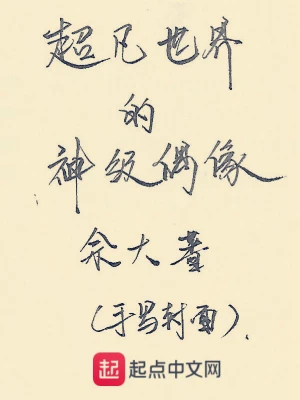 超凡世界
的
神级偶像
佘大蕃
(手写封面).
起 起点中文网